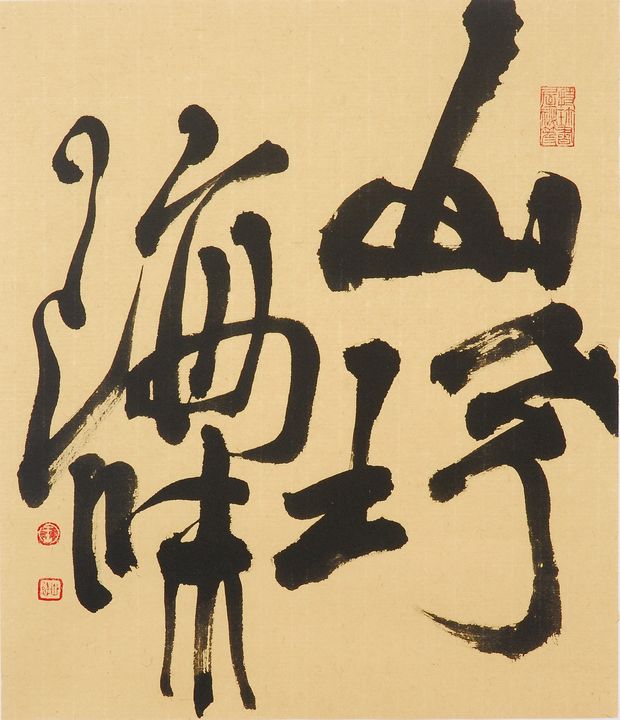 山珍
海味